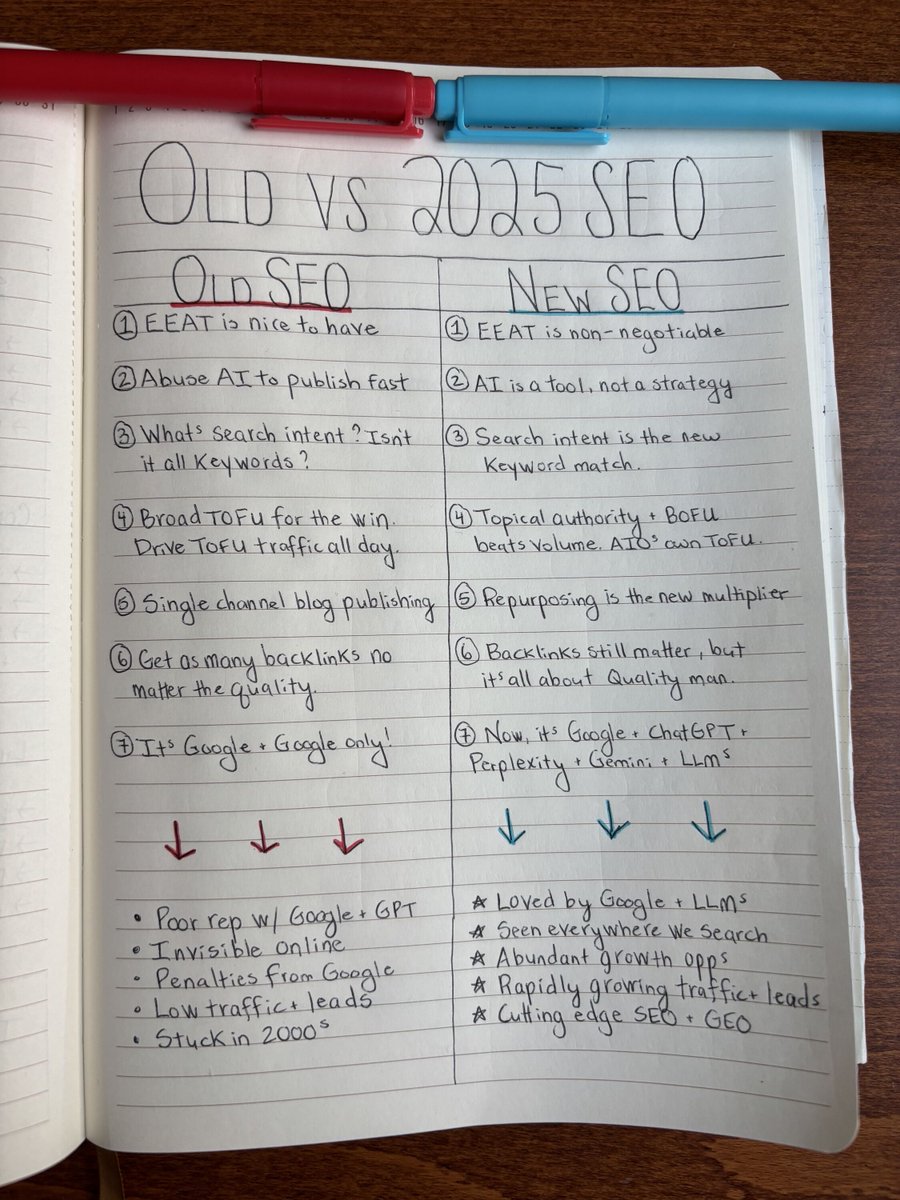 OLD VS 2025 SEO
OLD SEO
① EEAT is nice to have
② Abuse AI to publish fast
③ What's search intent? Isn't
it all Keywords?
④ Broad TOFU for the win.
Drive TOFU traffic all day.
⑤ Single channel blog publishing
⑥ Get as many backlinks no
matter the quality.
⑦ It's Google + Google only!
• Poor rep w/ Google + GPT
• Invisible online
• Penalties from Google
• Low traffic + leads
• Stuck in 2000s
NEW SEO
① EEAT is non-negotiable
② AI is a tool, not a strategy
③ Search intent is the new
Keyword match.
④ Topical authority + BOFU
beats volume. AIO's own TOFU.
⑤ Repurposing is the new multiplier
⑥ Backlinks still matter, but
it's all about Quality man.
⑦ Now, it's Google + ChatGPT +
Perplexity + Gemini + LLMs
☆ Loved by Google + LLMs
☆ Seen everywhere we search
☆ Abundant growth opps
☆ Rapidly growing traffic + leads
☆ Cutting edge SEO + GEO